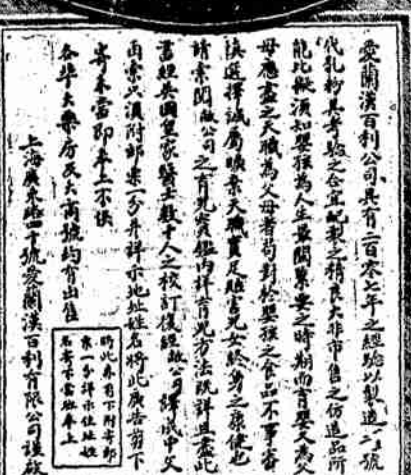 愛蘭漢百利公司具有二百零七年之經驗以製造一二號
代乳粉其奇驗之合宜配製之精良大非市售之仿造品所
能比擬須知嬰孩為人生最關緊要之時期而育嬰又為父
母應盡之天職為父母者苟對於嬰孩之食品不事審
慎選擇誠屬曠棄天職實足貽害兒女終身之康健也
請索閱敝公司之育兒寶鑑內詳育兒方法既詳且盡此
書經英國皇家醫士數十人之校訂復經敝公司譯成中文
函索只須附郵票一分并詳示地址姓名將此廣告剪下
寄來當即奉上不悮
各埠大藥房及大商號均有出售
上海廣東路四十號愛蘭漢百利有限公司謹啟
將此券剪下附寄郵
票一分詳示住址姓
名寄下當即奉上